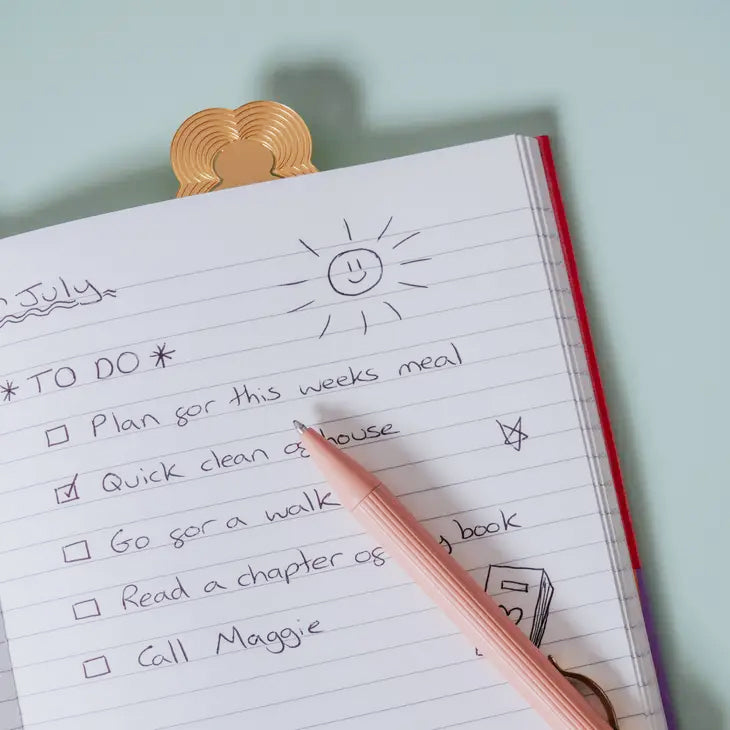 July
* TO DO *
Plan for this weeks meal
Quick clean of house
Go for a walk
Read a chapter of book
Call Maggie